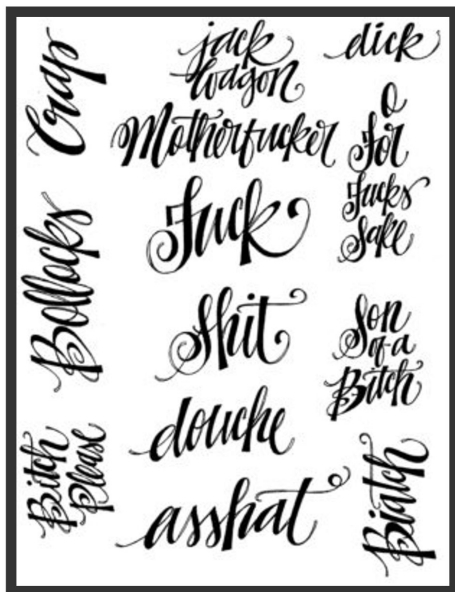 Crap
Bollocks
Bitch
Please
jack
wagon
Motherfucker
Fuck
Shit
douche
asshat
dick
O
For
Fucks
Sake
Son
of a
Bitch
Biatch